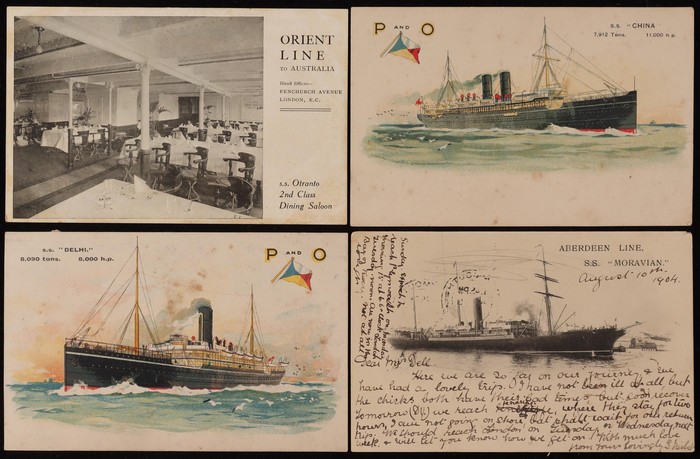 ORIENT
LINE
TO AUSTRALIA
Head Offices—
FENCHURCH AVENUE
LONDON, E.C.
S.S. Otranto
2nd Class
Dining Saloon
P AND O
S.S. "CHINA"
7,912 Tons. 11,000 h.p.
S.S. "DELHI."
8,090 tons. 8,000 h.p.
P AND O
ABERDEEN LINE,
S.S. "MORAVIAN."
August 10th
1904.
Dear Mrs Dell
Here we are so far on our journey & we
have had a lovely trip. I have not been ill at all but
the chicks both have their bad times, but soon recover
tomorrow we reach where they stay for two
hours, I am not going on shore but shall wait for our return
trip. We should reach London on Tuesday or Wednesday next
week, & will let you know how we get on. With much love
from yours lovingly